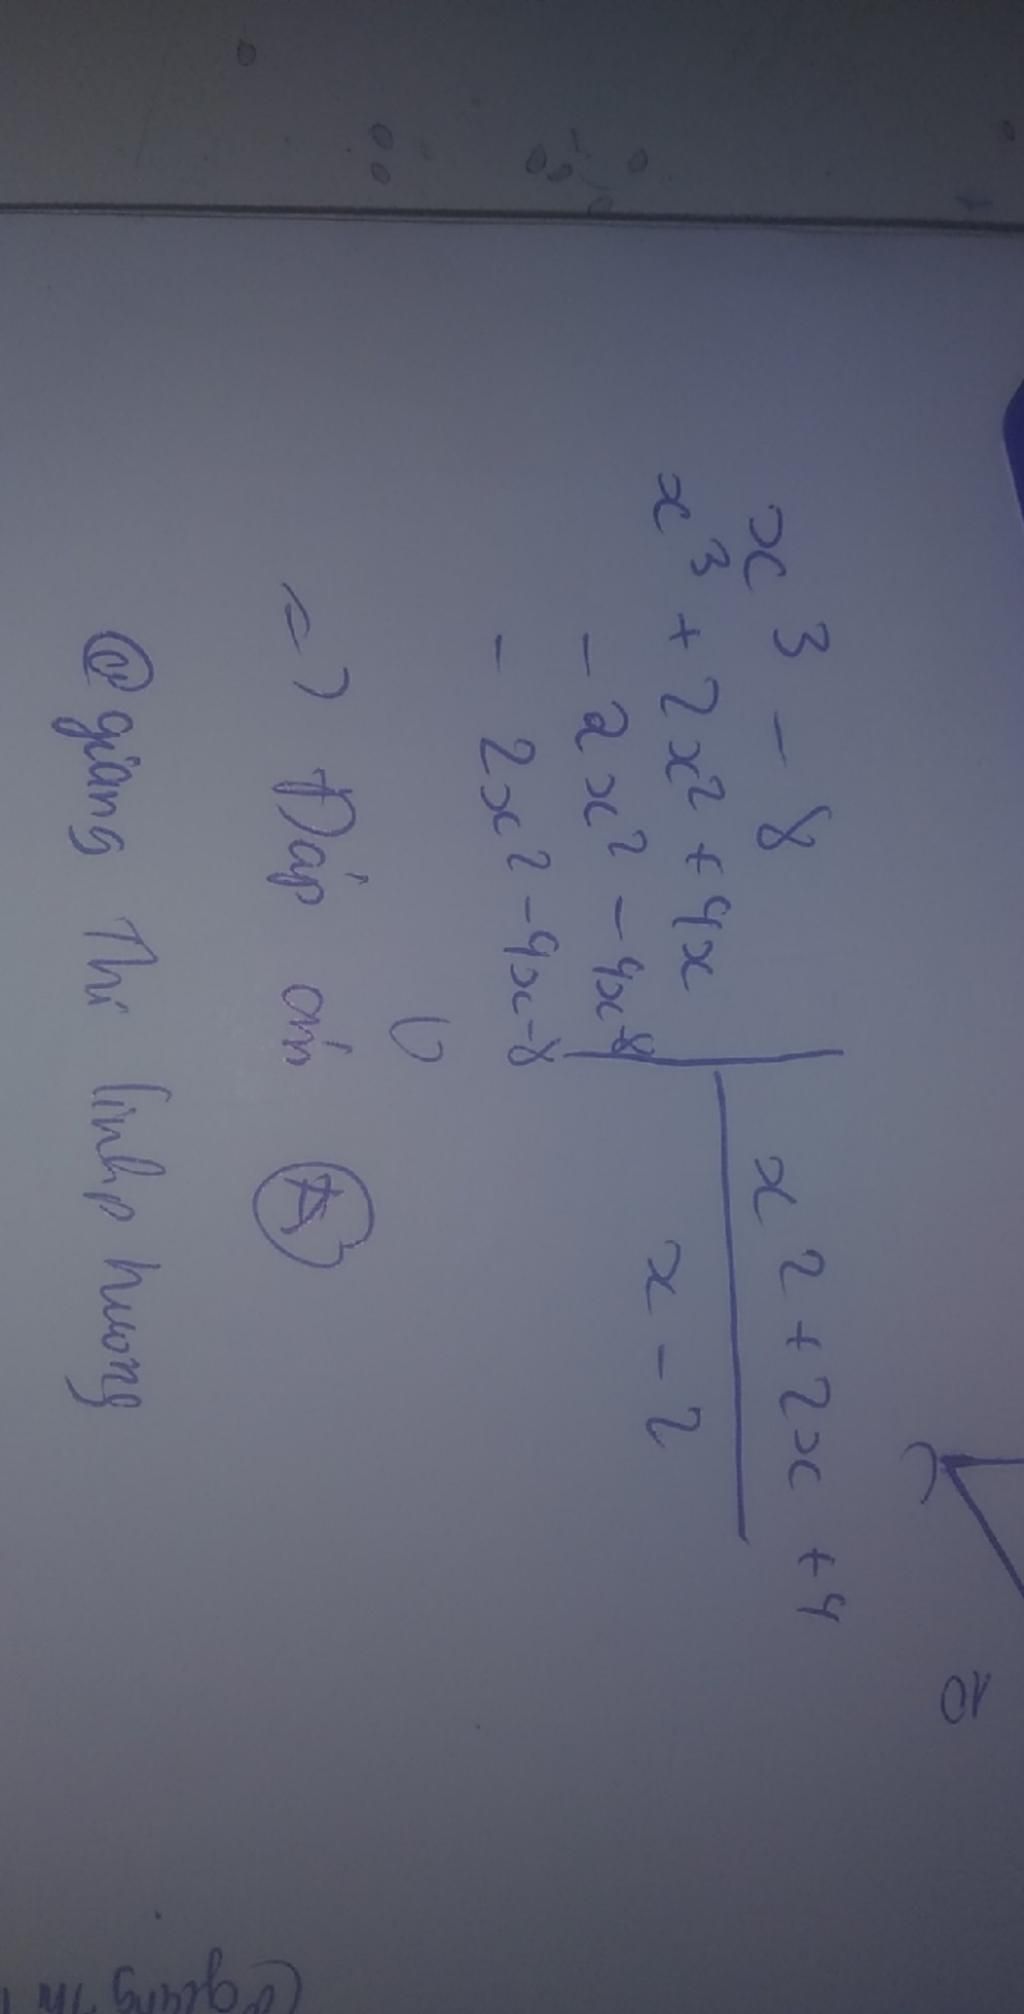 x³ - 8 x² + 2x + 4
x³ + 2x² + 4x x - 2
- 2x² - 4x - 8
- 2x² - 4x - 8
0
=> Đáp án A
@giang Thi linhp huong
10